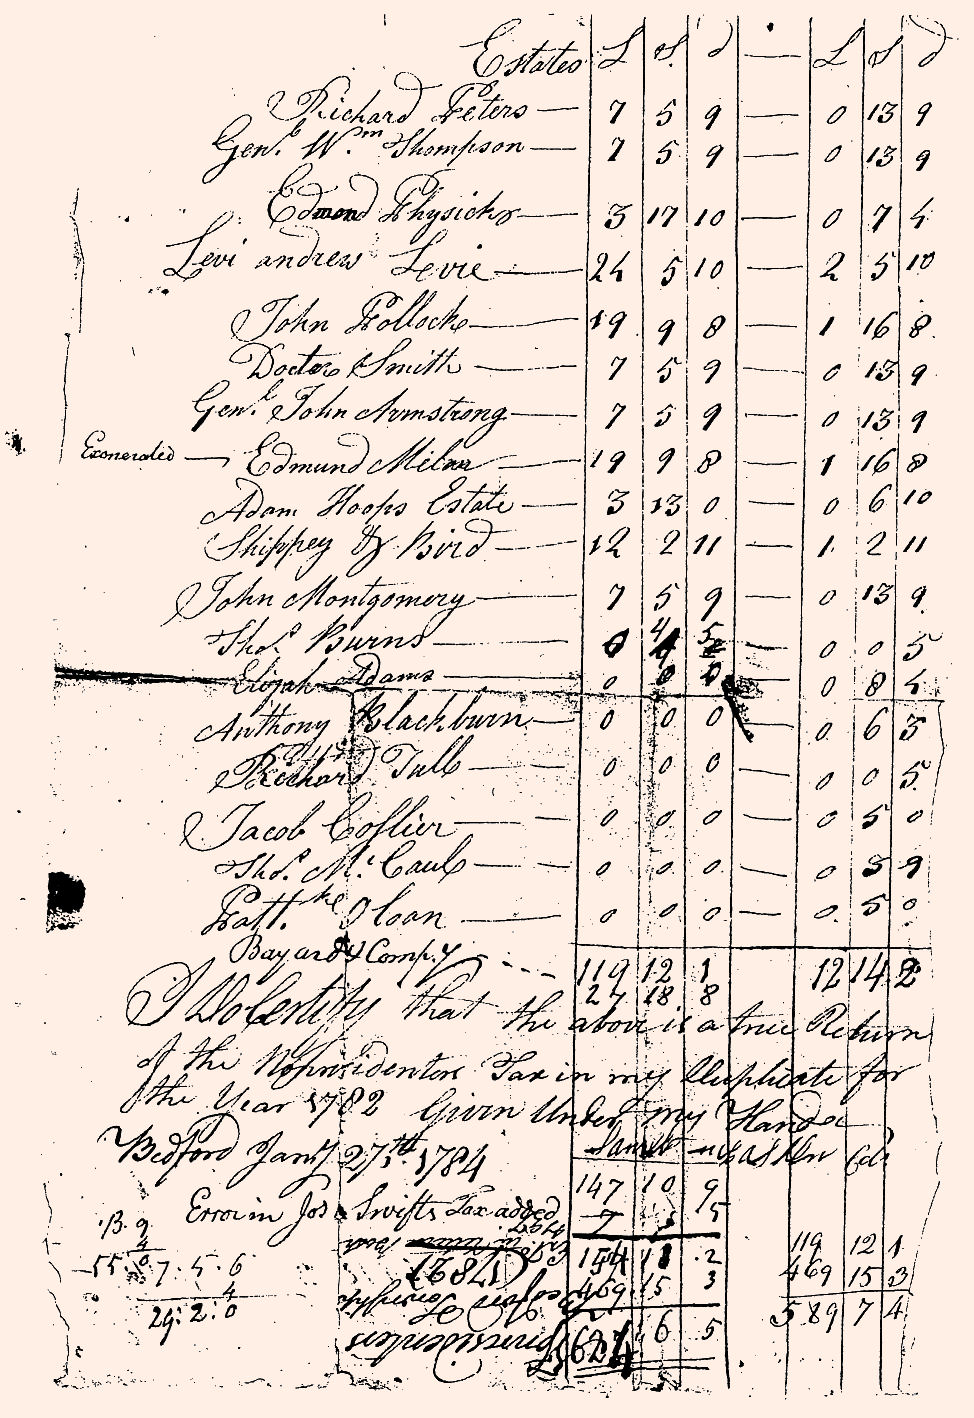 Estates £ S. d — £ S d
Richard Peters — 7 5 9 — 0 13 9
Genl. Wm. Thompson — 7 5 9 — 0 13 9
Edmond Physicks — 3 17 10 — 0 7 4
Levi andrew Levie — 24 5 10 — 2 5 10
John Pollocke — 19 9 8 — 1 16 8
Docter Smith — 7 5 9 — 0 13 9
Genl. John Armstrong — 7 5 9 — 0 13 9
Exonerated — Edmund Milne — 19 9 8 — 1 16 8
Adam Hoops Estate — 3 13 0 — 0 6 10
Shippey & Bird — 12 2 11 — 1 2 11
John Montgomery — 7 5 9 — 0 13 9
Thos. Burns — 0 4 5 — 0 0 5
Elijah Adams — 0 0 0 — 0 8 4
Anthony Blackburn — 0 0 0 — 0 6 3
Richard Tull — 0 0 0 — 0 0 5
Jacob Collier — 0 0 0 — 0 5 0
Thos. Mc Caul — 0 0 0 — 0 5 9
Patt. Sloan — 0 0 0 — 0 5 0
119 12 1 12 14 2
Bayard & Compy - - - 27 18 8
I Do Certify that the above is a true Return
of the Nonresidenters Tax in my Duplicate for
the Year 1782 Given Under my Hand
Bedford Jany 27th. 1784
147 10 9
Error in Jos Swifts Tax added 7 5
154 11 2
469 15 3
£624 6 5
119 12 1
469 15 3
589 7 4
7. 5. 6
4
29: 2: 0
(1782)